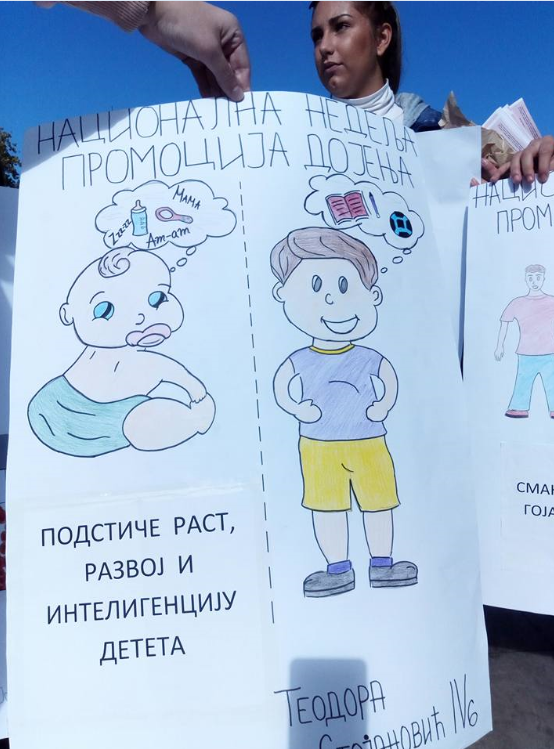 НАЦИОНАЛНА НЕДЕЉА
ПРОМОЦИЈА ДОЈЕЊА
Мама
Zz-zz
Am-am
ПОДСТИЧЕ РАСТ,
РАЗВОЈ И
ИНТЕЛИГЕНЦИЈУ
ДЕТЕТА
ТЕОДОРА
СТОЈАНОВИЋ IV6
НАЦИО
ПРОМ
СМАЊ
ГОЈА